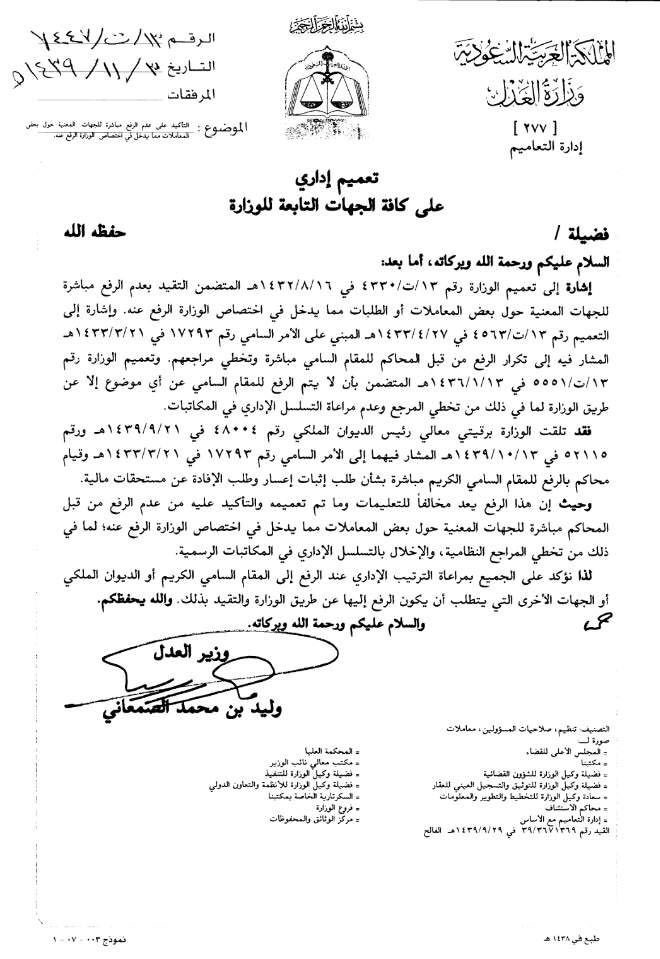 بسم الله الرحمن الرحيم
المملكة العربية السعودية
وزارة العدل
[ ٢٧٧ ]
إدارة التعاميم
الرقم ١٣/ت/٧٤٤٧
التاريخ ٣/١١/١٤٣٩هـ
المرفقات
الموضوع: التأكيد على عدم الرفع مباشرة للجهات المعنية حول بعض
المعاملات مما يدخل في اختصاص الوزارة الرفع عنه.
تعميم إداري
على كافة الجهات التابعة للوزارة
فضيلة / حفظه الله
السلام عليكم ورحمة الله وبركاته، أما بعد:
إشارة إلى تعميم الوزارة رقم ١٣/ت/٤٣٣٠ في ١٤٣٢/٨/١٦هـ المتضمن التقيد بعدم الرفع مباشرة
للجهات المعنية حول بعض المعاملات أو الطلبات مما يدخل في اختصاص الوزارة الرفع عنه. وإشارة إلى
التعميم رقم ١٣/ت/٤٥٦٣ في ١٤٣٣/٤/٢٧هـ المبني على الأمر السامي رقم ١٧٢٩٣ في ١٤٣٣/٣/٢١هـ
المشار فيه إلى تكرار الرفع من قبل المحاكم للمقام السامي مباشرة وتخطي مراجعهم. وتعميم الوزارة رقم
١٣/ت/٥٥٥١ في ١٤٣٦/١/١٣هـ المتضمن بأن لا يتم الرفع للمقام السامي عن أي موضوع إلا عن
طريق الوزارة لما في ذلك من تخطي المرجع وعدم مراعاة التسلسل الإداري في المكاتبات.
فقد تلقت الوزارة برقيتي معالي رئيس الديوان الملكي رقم ٤٨٠٠٤ في ١٤٣٩/٩/٢١هـ ورقم
٥٢١١٥ في ١٤٣٩/١٠/١٣هـ المشار فيهما إلى الأمر السامي رقم ١٧٢٩٣ في ١٤٣٣/٣/٢١هـ وقيام
محاكم بالرفع للمقام السامي الكريم مباشرة بشأن طلب إثبات إعسار وطلب الإفادة عن مستحقات مالية.
وحيث إن هذا الرفع يعد مخالفاً للتعليمات وما تم تعميمه والتأكيد عليه من عدم الرفع من قبل
المحاكم مباشرة للجهات المعنية حول بعض المعاملات مما يدخل في اختصاص الوزارة الرفع عنه؛ لما في
ذلك من تخطي المراجع النظامية، والإخلال بالتسلسل الإداري في المكاتبات الرسمية.
لذا نؤكد على الجميع بمراعاة الترتيب الإداري عند الرفع إلى المقام السامي الكريم أو الديوان الملكي
أو الجهات الأخرى التي يتطلب أن يكون الرفع إليها عن طريق الوزارة والتقيد بذلك. والله يحفظكم.
والسلام عليكم ورحمة الله وبركاته.
وزير العدل
وليد بن محمد الصمعاني
التصنيف: تنظيم، صلاحيات المسؤولين، معاملات
صورة لـــ
= المجلس الأعلى للقضاء
= مكتبنا
= فضيلة وكيل الوزارة للشؤون القضائية
= فضيلة وكيل الوزارة للتوثيق والتسجيل العيني للعقار
= سعادة وكيل الوزارة للتخطيط والتطوير والمعلومات
= محاكم الاستئناف
= إدارة التعاميم مع الأساس
القيد رقم ٣٩/٣٦٧١٣٦٩ في ١٤٣٩/٩/٢٩هـ الفالح
= المحكمة العليا
= مكتب معالي نائب الوزير
= فضيلة وكيل الوزارة للتنفيذ
= فضيلة وكيل الوزارة للأنظمة والتعاون الدولي
= السكرتارية الخاصة بمكتبنا
= فروع الوزارة
= مركز الوثائق والمحفوظات
طبع في ١٤٣٨ هـ
نموذج ٠٠٣ - ٠٧ - ١